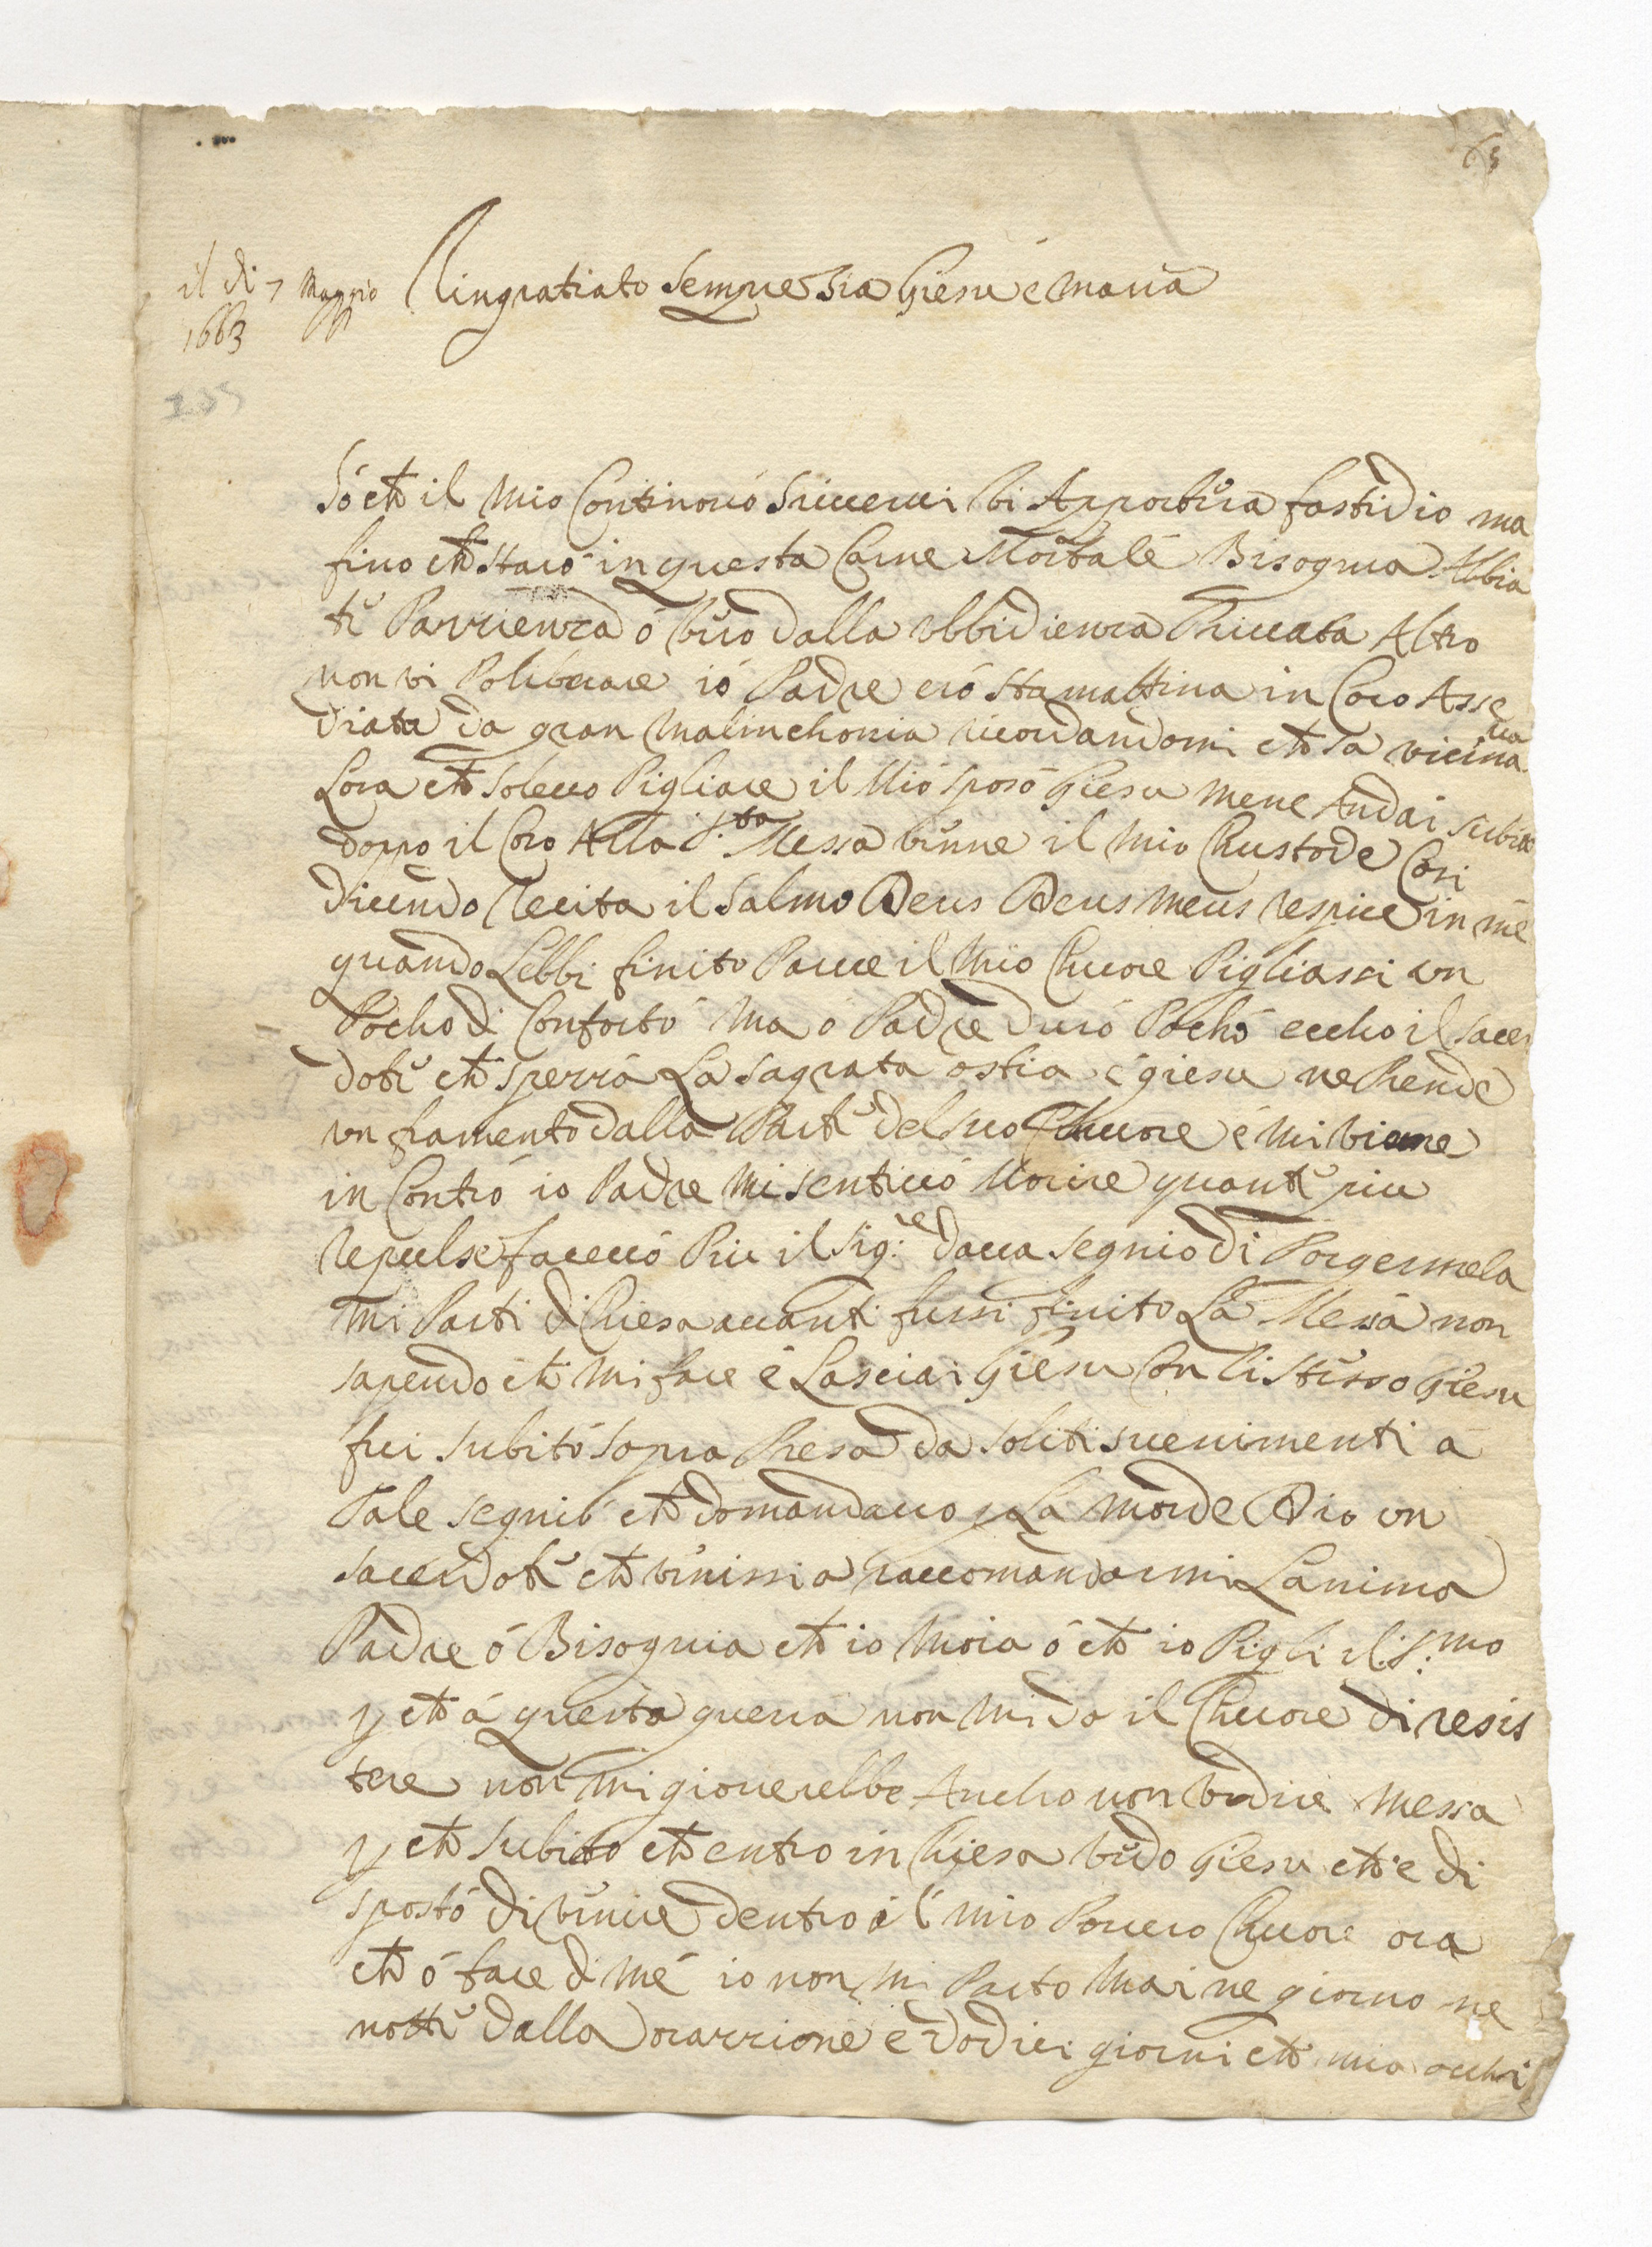 65
il di 7 Maggio Ringratiato sempre sia Giesu e maria
1663
235
Só che il mio Continouó scriverui vi Apportera fastidio ma
fino che staró in questa Carne Mortale Bisogna Abbia
te Pazzienza ó vero dalla ubbidienza Priuata Altro
non vi Poliberare ió Padre eró stamattina in Coro Asse
diata da gran malinchonia ricordandomi che sa vicina
ua
Lora che soleuo Pigliare il Mió sposó Giesu mene Andai subito
doppo il Coro Alla S.ta Messa venne il mio Chustode Cosi
dicendo Recita il salmo Deus Deus meus respice in me
quando Lebbi finito Parue il mio Chuore Pigliassi un
Pocho di Confortó ma o Padre duró Pochó eccho il sacer
dote che sperrá La sagrata ostia é giesu ne Prende
un framento dalla Parte del suo Chuore é mi viene
in Contró io Padre mi sentiuó Morire quante piu
repulse faceuó Piu il Sig:re daua segnio di Porgermela
mi Parti di Chiesa auanti fussi finito La Messa non
sapendo che mi fare é Lasciai Giesu Con listesso Giesu
fui subitó sopra Presa da soliti suenimenti á
Tale segnió che domandauo p La morde Dio un
sacerdote che venissi a raccomandarmi Lanima
Padre ó Bisognia che io Moia ó che io Pigli il S:mo
p che á questa guerra non mi da il Chuore di resis
tere non mi giouerebbe Ancho non vdire Messa
p che subito che entro in Chiesa vedo Giesu che e di
spostó di venire dentro al mio Pouero Chuore ora
che ó fare di mé io non mi Parto mai ne giorno ne
notte dalla orazzione e dodici giorni che mia occhi